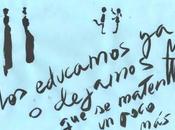 los educamos ya
o dejamos
que se maten
un poco
más